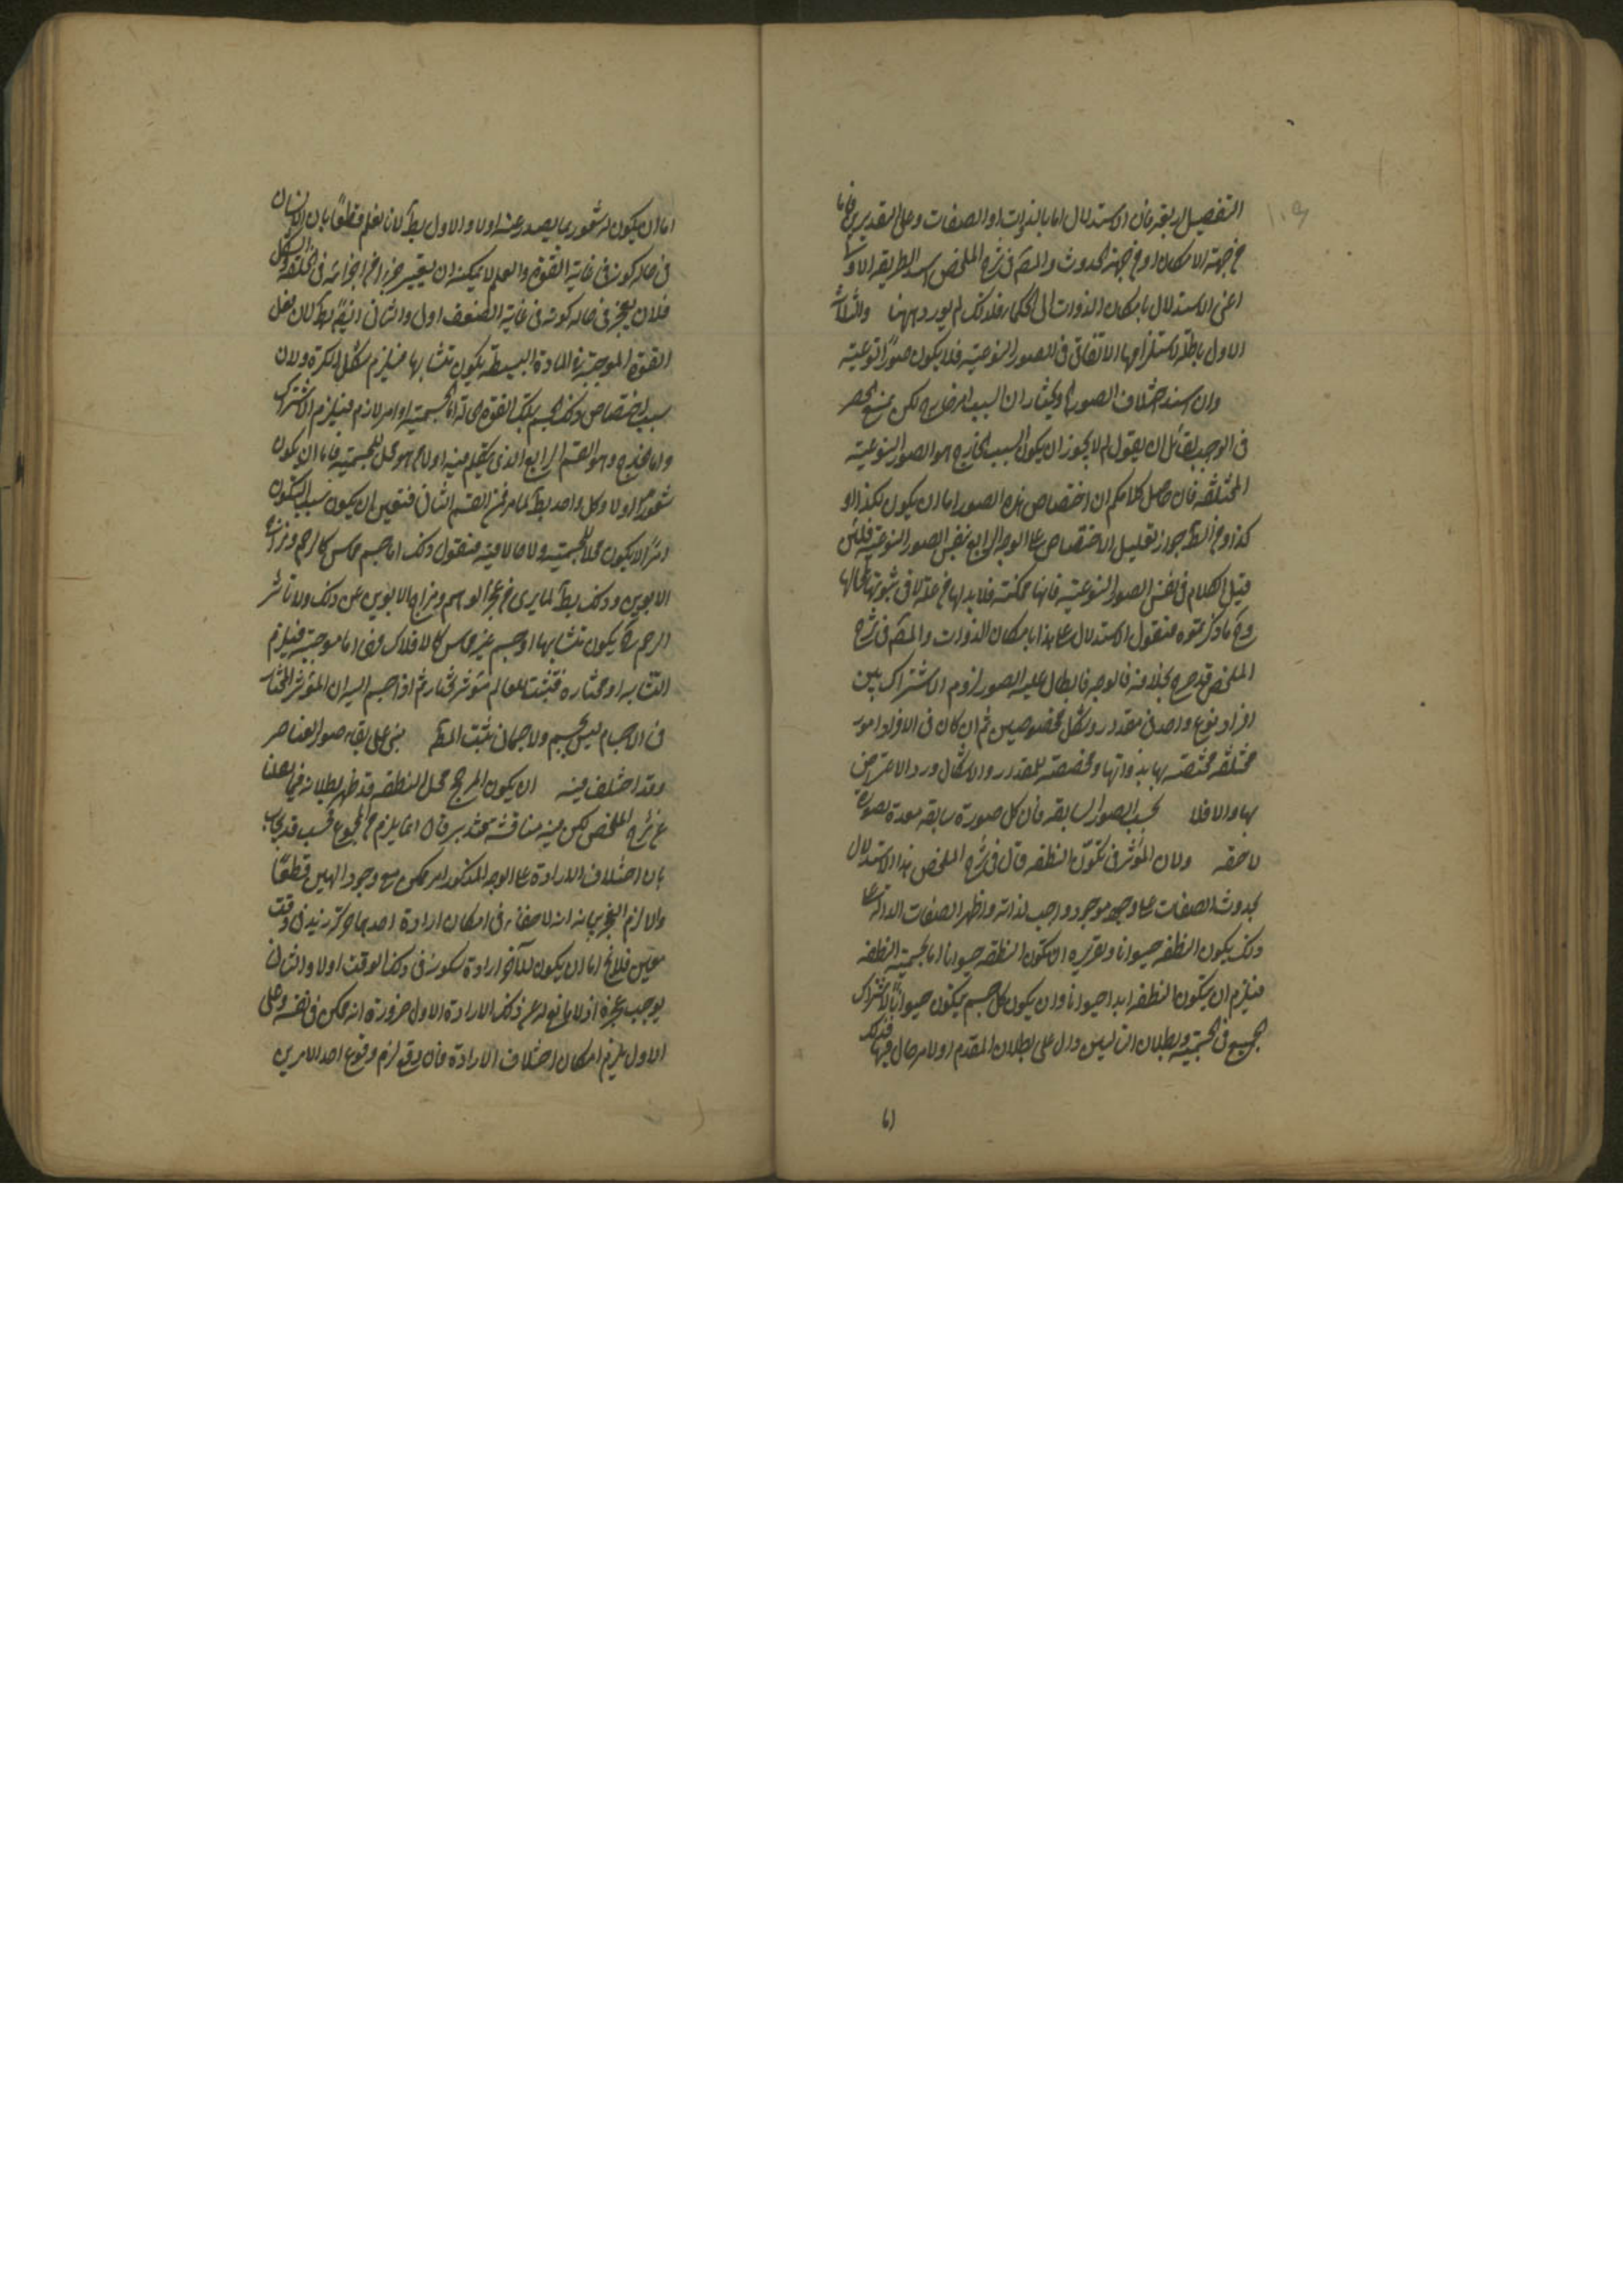 التفصيل اربعة فان الاستدلال اما بالذوات او الصفات وعلى التقديرين فاما
من جهة الامكان او من جهة الحدوث والمصنف فى شرح الملخص اسند الطريقة الاولى
اعنى الاستدلال بامكان الذوات الى الحكماء فلذلك لم يورد ههنا والثلاث
الاول باطلة لاستلزامها الاتفاق فى الصور النوعية فلا يكون صورًا نوعية
وان اسند اختلاف الصور ويختار ان السبب امر خارج لكن يمنع الحصر
فى الوجب لقائل ان يقول لم لا يجوز ان يكون السبب الخارج هو الصور النوعية
المختلفة فان حاصل كلامكم ان اختصاص هذه الصور اما ان يكون لكذا او
كذا ومن جواز تعليل الاختصاص على الوجه الرابع بنفس الصور النوعية فلئن
قيل الكلام فى نفس الصور النوعية فانها ممكنة فلا بد لها من علة لا فى ثبوتها لمحالها
ما ذكرتموه فنقول الاستدلال على هذا بامكان الذوات والمصنف فى شرح
الملخص قد صرح بخلافه فالوجه فى ابطال علية الصور لزوم الاشتراك بين
افراد نوع واحد فى مقدار وشكل مخصوصين ثم ان كان فى الافراد امور
مختلفة مختصة بها بذواتها ومخصصة للمقدار والاشكال ورد الاعتراض
بها والا فلا بحسب الصور السابقة فان كل صورة سابقة معدة لصورة
لاحقة ولان المؤثر فى تكون النطفة قال فى شرح الملخص هذا الاستدلال
بحدوث الصفات على وجود موجود واجب لذاته واظهر الصفات الدالة على
ذلك يكون النطفة حيوانا وتقريره ان تكون النطفة حيوانا اما لجسمية النطفة
فيلزم ان يتكون النطفة ابدا حيوانا وان يكون كل جسم يتكون حيوانًا لاشتراك
الجميع فى الجسمية وبطلان التاليين دال على بطلان المقدم او لامر حال فيها فذلك
اما
اما ان يكون له شعور بما يصدر عنه اولا والاول بط لانا نعلم قطعًا بان الانسان
فى حالة كونه فى غاية القوة والعلم لا يمكنه ان يغير جزءا من اجزائه فى الخلقة والشكل
فلان يعجز فى حالة كونه فى غاية الضعف اولى والثانى ايضًا بط لان فعل
القوة الموجبة فى المادة البسيطة يكون متشابها فيلزم شكل الكرة ولان
سبب اختصاص ذلك الجسم بتلك القوة الحالة اما الجسمية او امر لازم فيلزم الاشتراك
واما خارج وهو القسم الرابع الذى سنقيم فيه اولا هو محل للجسمية فاما ان يكون
شعور اولا وكل واحد بط لما مر فى القسم الثانى فتعين ان يكون سبب التكون
امرًا لا يكون محلا للجسمية ولا حالا فيه فنقول ذلك اما جسم مماس كالرحم ومزاج
الابوين وذلك بط لما يرى من عجز الرحم ومزاج الابوين عن ذلك ولان تاثير
الرحم يكون متشابها او جسم غير مماس كالافلاك فهى اما موجبة فيلزم
التشابه او مختارة فثبت للعالم مؤثر مختار ثم اذا جسم اليه ان المؤثر المختار
فى الاجسام ليس بجسم ولا جسمانى ثبت المط مبنى على بقاء صور العناصر
وقد اختلف فيه ان يكون المرجح محل النطفة قد ظهر بطلانه فيما نقلنا
عن شرح الملخص لكن فيه مناقشة فتدبر فان انما يلزم من المجموع فحسب قد يجاب
بان اختلاف الارادة على الوجه المذكور امر ممكن مع وجود الهين قطعًا
والا لزم العجز بيانه انه لا خفاء فى امكان ارادة احدهما حركة زيد فى وقت
معين فلا يخ اما ان يكون للآخر ارادة سكونه فى ذلك الوقت اولا والثانى
يوجب عجزه اذ لا مانع له عن ذلك الا ارادة الاول ضرورة انه ممكن فى نفسه وعلى
الاول يلزم امكان اختلاف الارادة فان وقع لزم وقوع احد الامرين